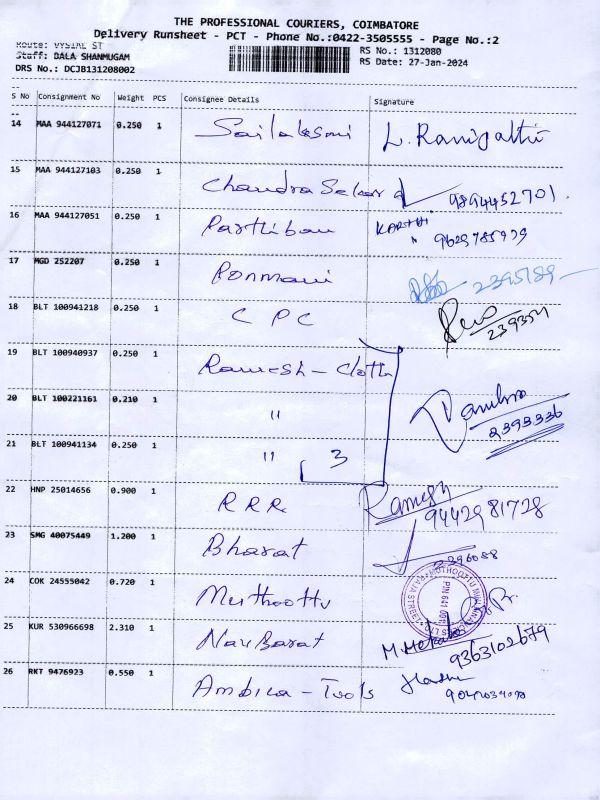 THE PROFESSIONAL COURIERS, COIMBATORE
Delivery Runsheet - PCT - Phone No.:0422-3505555 - Page No.:2
Route: VYSIAL ST RS No.: 1312080
Staff: BALA SHANMUGAM RS Date: 27-Jan-2024
DRS No.: DCJB131208002
S No Consignment No Weight PCS Consignee Details Signature
14 MAA 944127071 0.250 1 Sailaksmi
15 MAA 944127103 0.250 1 Chandra Sekar 9894452701.
16 MAA 944127051 0.250 1 Parthiban KARTHI
9629785939
17 MGD 252207 0.250 1 Ponmani 2395789
18 BLT 100941218 0.250 1 C P C
19 BLT 100940937 0.250 1 Ramesh - Cloth
20 BLT 100221161 0.210 1 " 2393336
21 BLT 100941134 0.250 1 " 3
22 HNP 25014656 0.900 1 R R R Ramesh
9442981728
23 SMG 40075449 1.200 1 Bharat 2396088
24 COK 24555042 0.720 1 Muthoottu
25 KUR 530966698 2.310 1 NavBarat
9363102679
26 RKT 9476923 0.550 1 Ambica - Tools